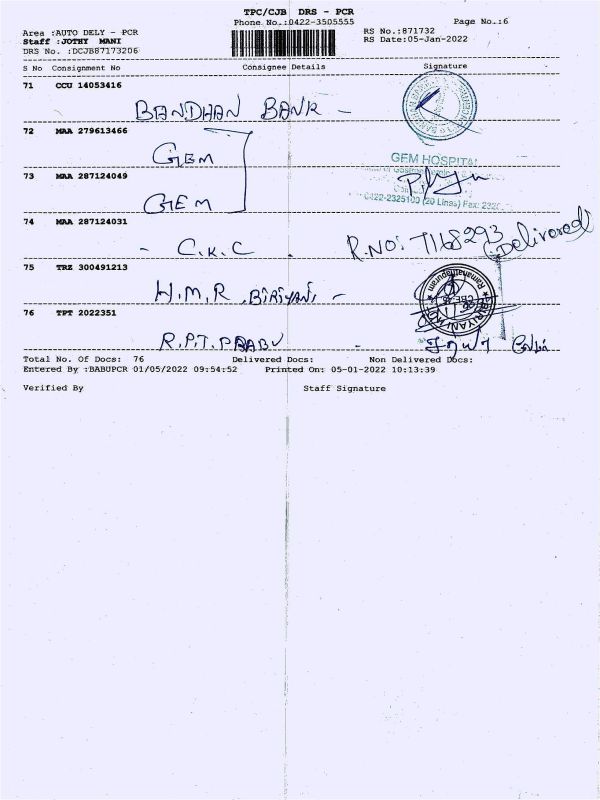 TPC/CJB DRS - PCR
Phone No.:0422-3505555
Page No.:6
Area :AUTO DELY - PCR
RS No.:871732
Staff :JOTHY MANI
RS Date:05-Jan-2022
DRS No. :DCJB87173206
S No Consignment No Consignee Details Signature
71 CCU 14053416
BANDHAN BANK -
72 MAA 279613466
GEM
GEM HOSPITAL
73 MAA 287124049
GEM
0422-2325100 (20 Lines) Fax: 232
74 MAA 287124031
- C.K.C .
R.NO: 7168293
Delivered
75 TRZ 300491213
H.M.R. BIRIYANI -
Ramanathapuram
76 TPT 2022351
R.P.T. PRABU -
Total No. Of Docs: 76 Delivered Docs: Non Delivered Docs:
Entered By :BABUPCR 01/05/2022 09:54:52 Printed On: 05-01-2022 10:13:39
Verified By Staff Signature